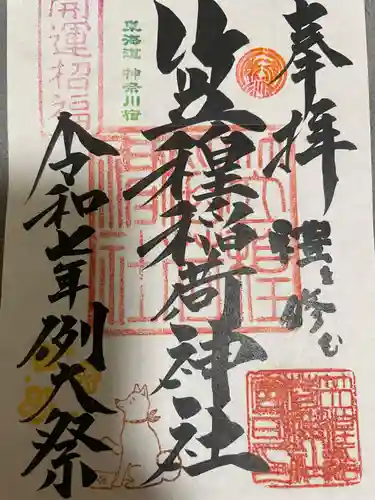 奉拝
禮を修む
笠䅣稲荷神社
令和七年例大祭
東海道 神奈川宿
開運招福